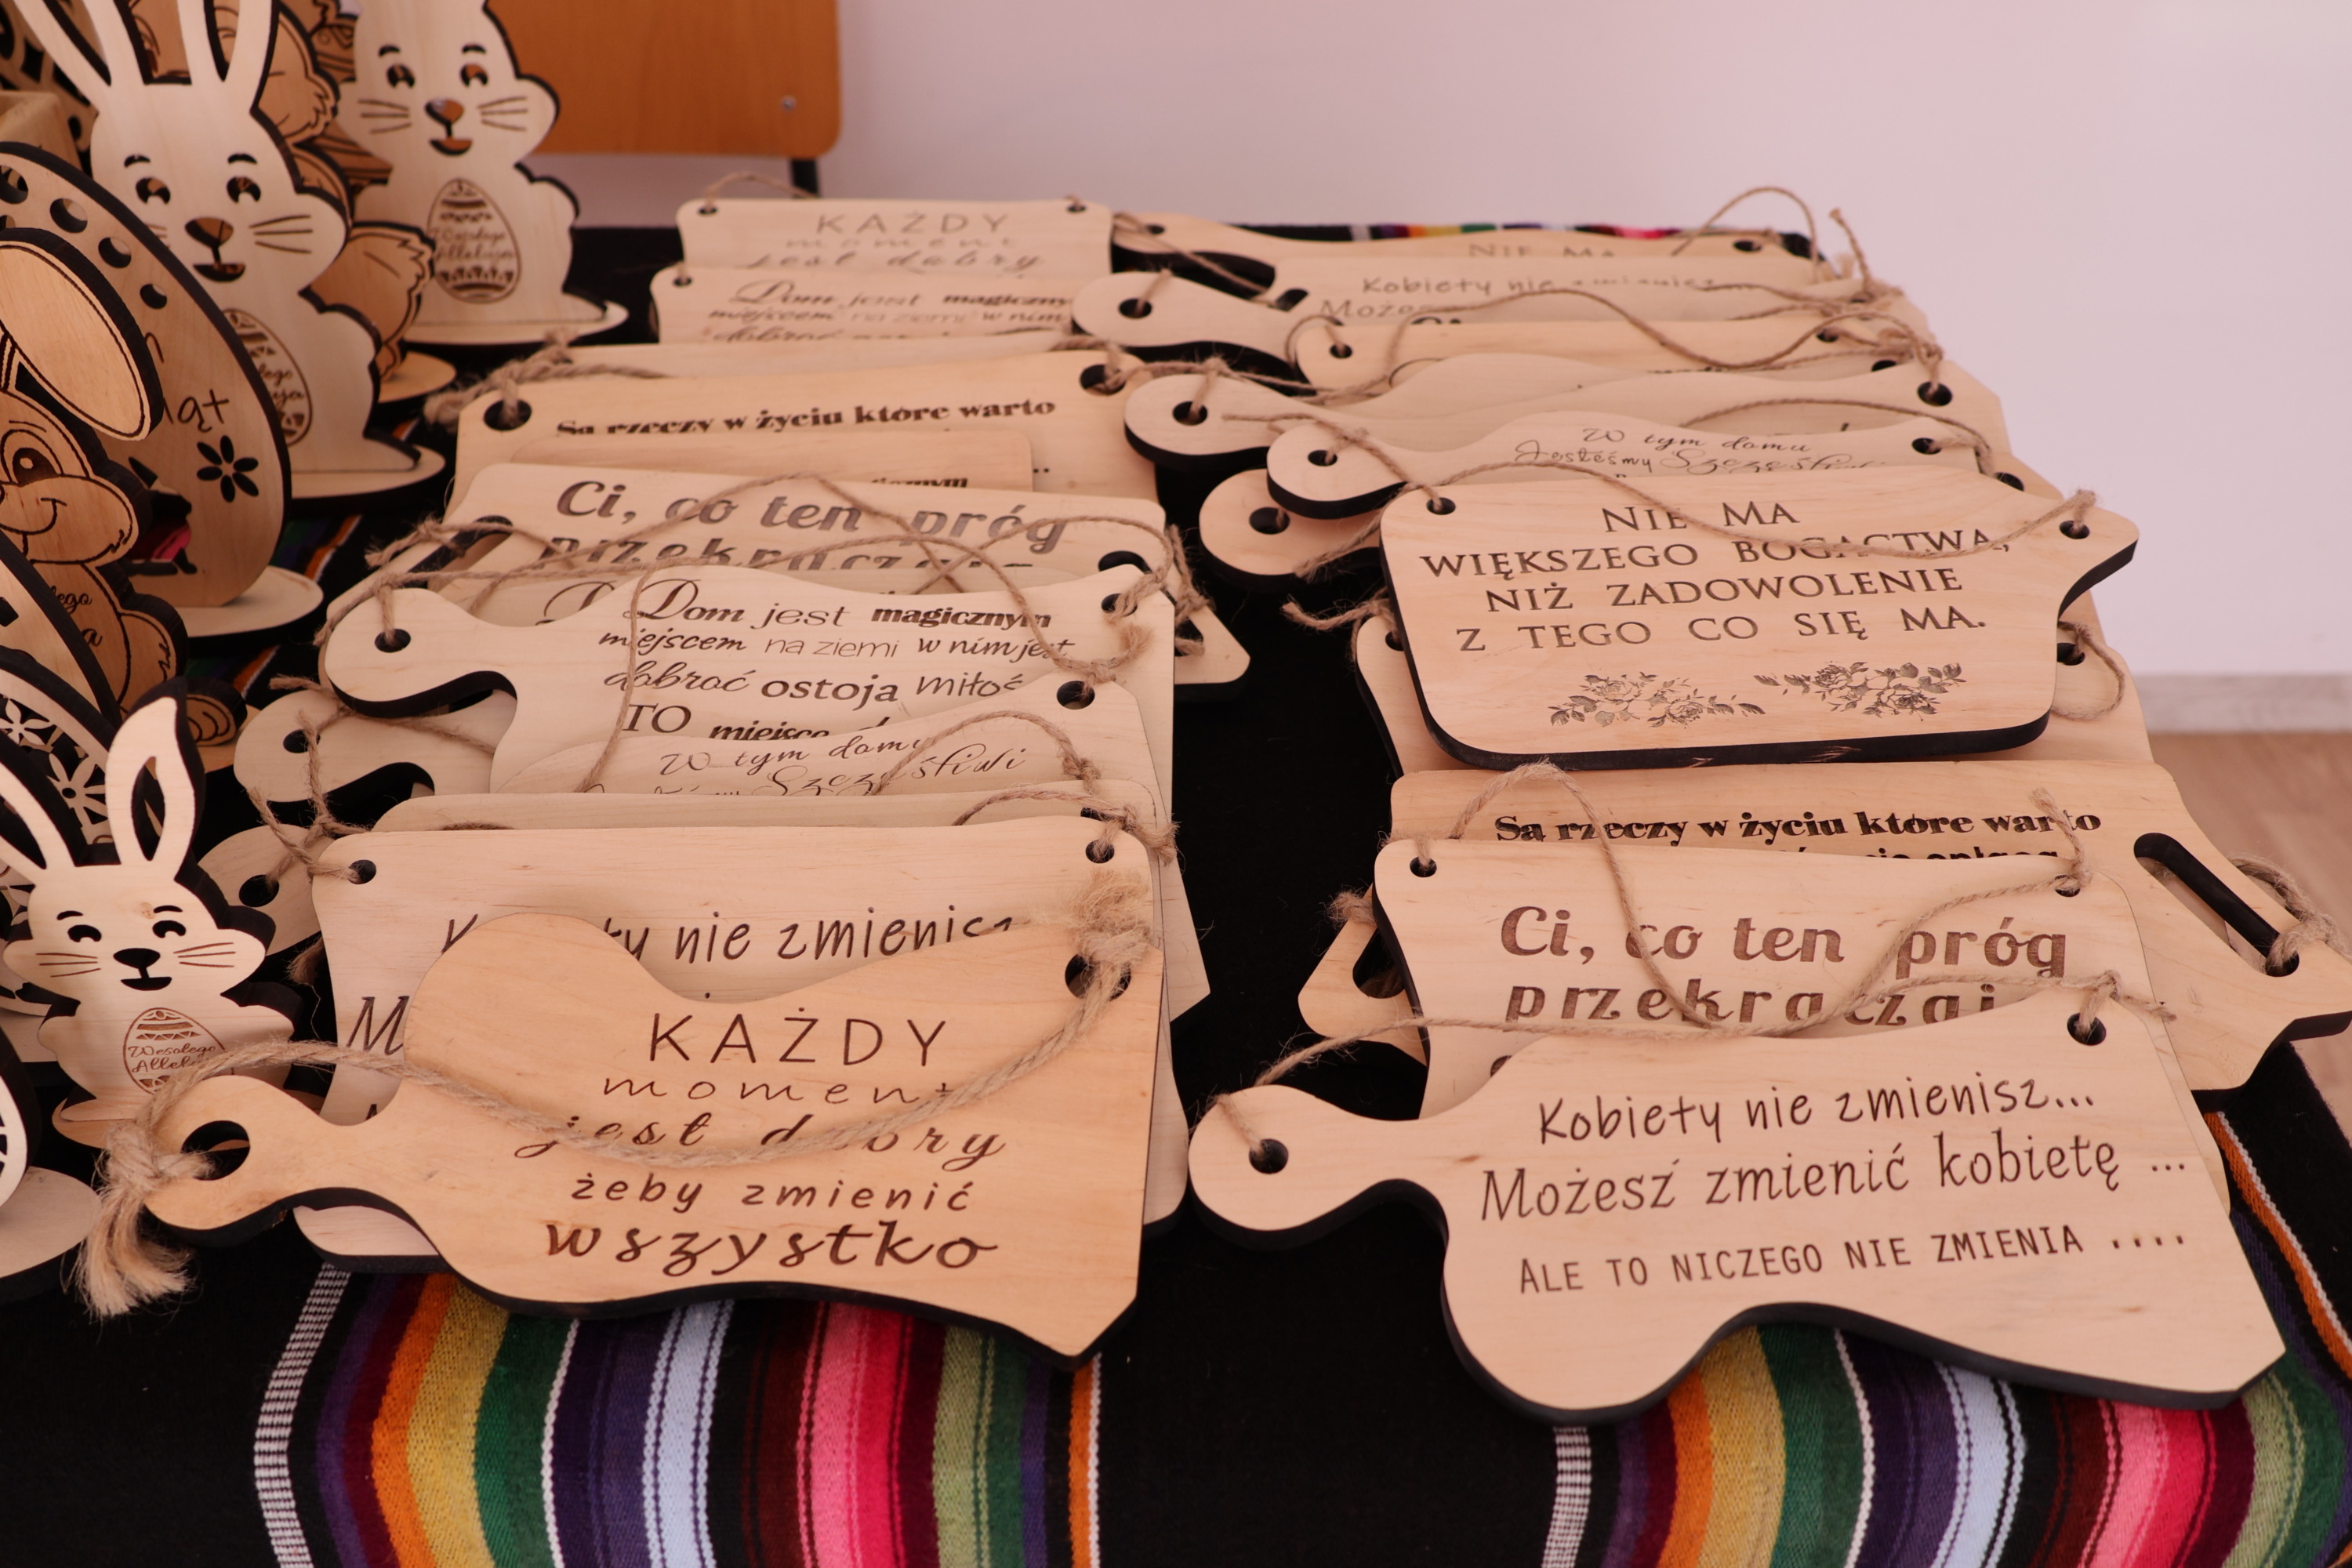 KAŻDY
moment
jest dobry
Dom jest magicznym
miejscem na ziemi w nim
NIE MA
Kobiety nie zmienisz
Może
Są rzeczy w życiu które warto
W tym domu
Jesteśmy Szczęśliwi
Ci, co ten próg
przekraczają
Dom jest magicznym
miejscem na ziemi w nim jest
dobroć ostoja miłość
TO miejsce
W tym domu
Szczęśliwi
NIE MA
WIĘKSZEGO BOGACTWA,
NIŻ ZADOWOLENIE
Z TEGO CO SIĘ MA.
Są rzeczy w życiu które warto
Ci, co ten próg
przekraczają
nie zmienisz
M
KAŻDY
moment
jest dobry
żeby zmienić
wszystko
Kobiety nie zmienisz...
Możesz zmienić kobietę ...
ALE TO NICZEGO NIE ZMIENIA ....
Wesołego
Alleluja
Wesołego
Alleluja